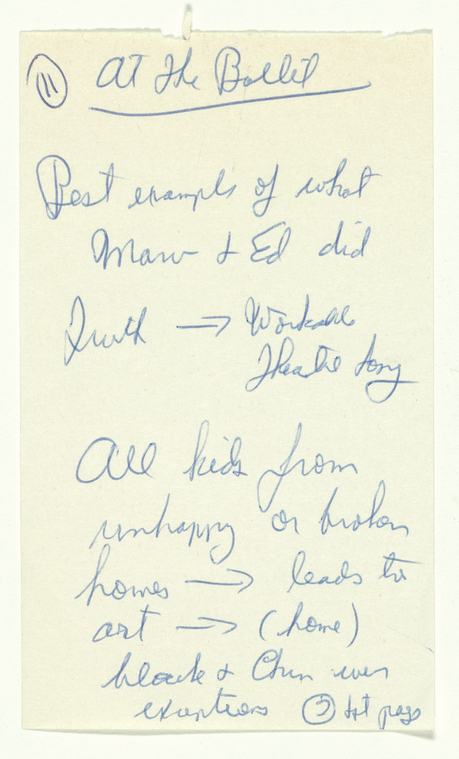 (11) At the Ballet
Best example of what
Marv + Ed did
Truth → Workable
Theatre Song
All kids from
unhappy or broken
homes → leads to
art → (home)
black + Chin were
exceptions page